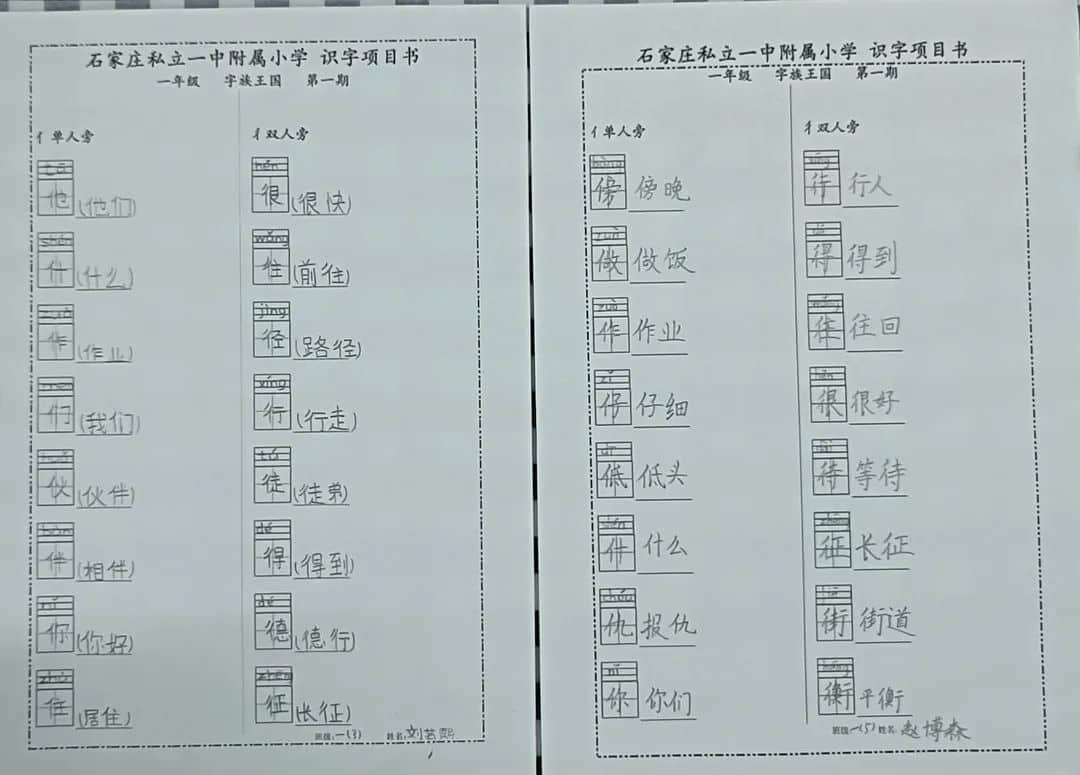 石家庄私立一中附属小学 识字项目书
一年级 字族王国 第一期
亻单人旁 彳双人旁
tā hěn
他(他们) 很(很快)
shén wǎng
什(什么) 往(前往)
zuò jìng
作(作业) 径(路径)
men xíng
们(我们) 行(行走)
huǒ tú
伙(伙伴) 徒(徒弟)
bàn dé
伴(相伴) 得(得到)
nǐ dé
你(你好) 德(德行)
zhù zhēng
住(居住) 征(长征)
班级:一(3) 姓名:刘茗熙
石家庄私立一中附属小学 识字项目书
一年级 字族王国 第一期
亻单人旁 彳双人旁
bàng xíng
傍 傍晚 行 行人
zuò dé
做 做饭 得 得到
zuò wǎng
作 作业 往 往回
zǐ hěn
仔 仔细 很 很好
dī dài
低 低头 待 等待
shén zhēng
什 什么 征 长征
chóu jiē
仇 报仇 街 街道
nǐ héng
你 你们 衡 平衡
班级:一(5) 姓名:赵博森